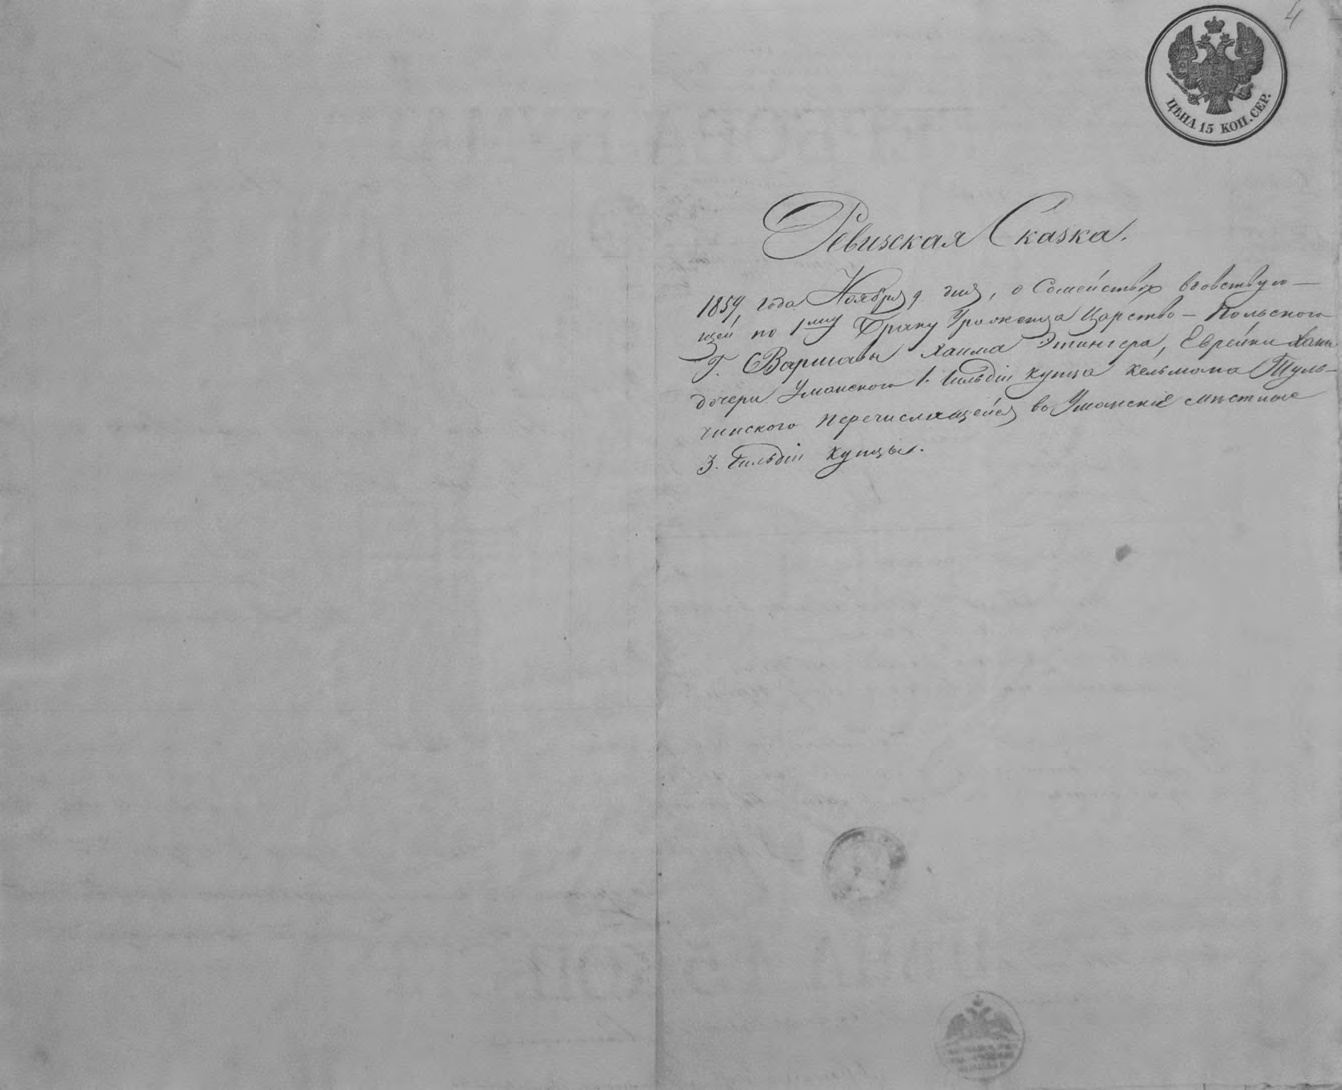 4
ЦѢНА 15 КОП. СЕР.
Ревизская Сказка.
1859, года Ноября 9 дня, о Семействѣ вдовствую-
щей по 1му Браку Граженца Царство-Польского
Г. Варшавы Хаима Этингера, Еврейки Ханы
дочери Уманского 1. Гильдіи купца Хельмана Туль-
чинского перечисляющейся во Уманскіе мѣстные
3. Гильдіи купцы.